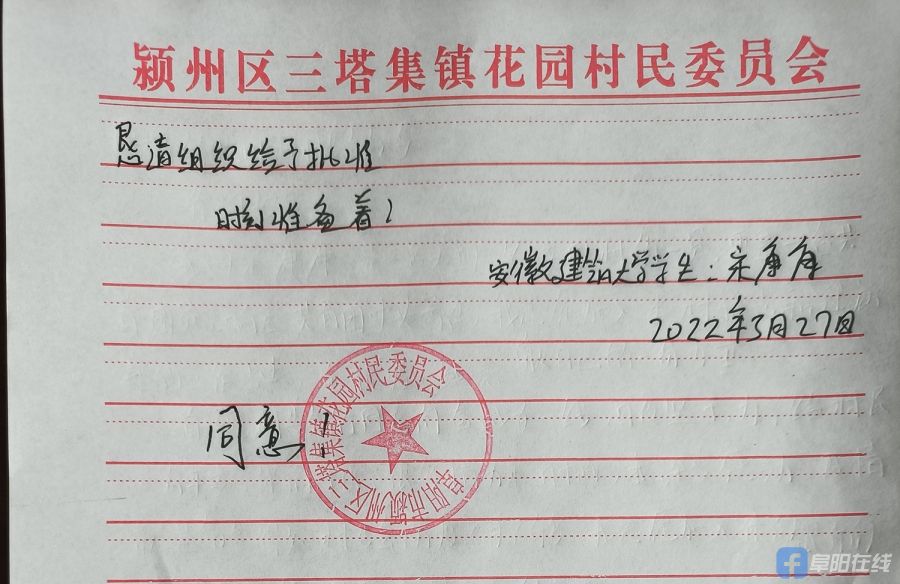 颍州区三塔集镇花园村民委员会
恳请组织给予批准
时刻准备着！
安徽建筑大学学生：宋康库
2022年3月27日
同意！
阜阳市颍州区三塔集镇花园村民委员会
阜阳在线